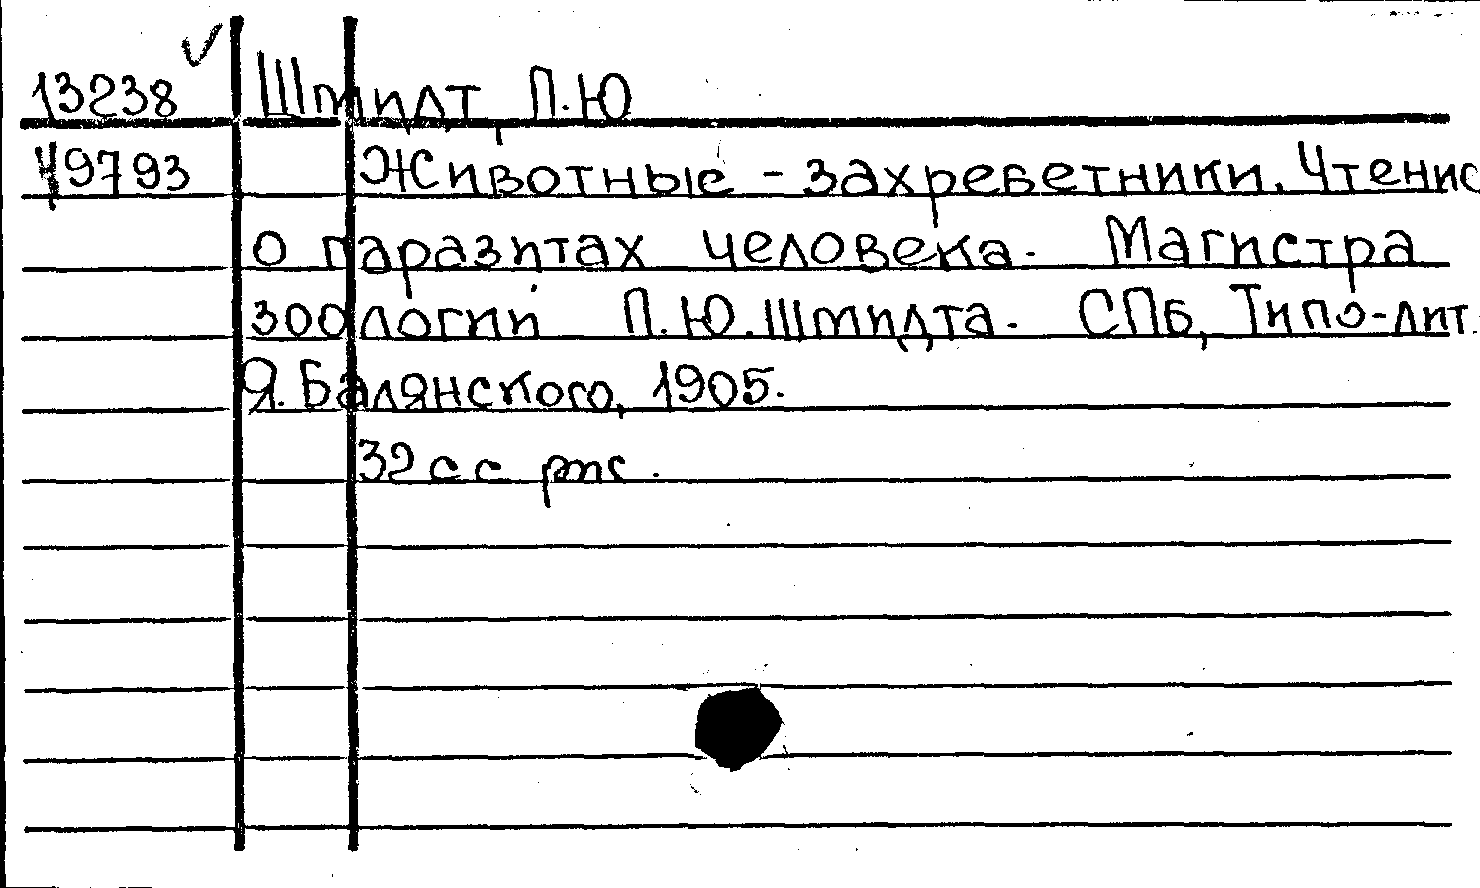 13238 Шмидт, П.Ю
49793 Животные - захребетники. Чтение
о паразитах человека. Магистра
зоологии П.Ю.Шмидта. СПб, Типо-лит.
Я. Балянского, 1905.
32 с с рис.